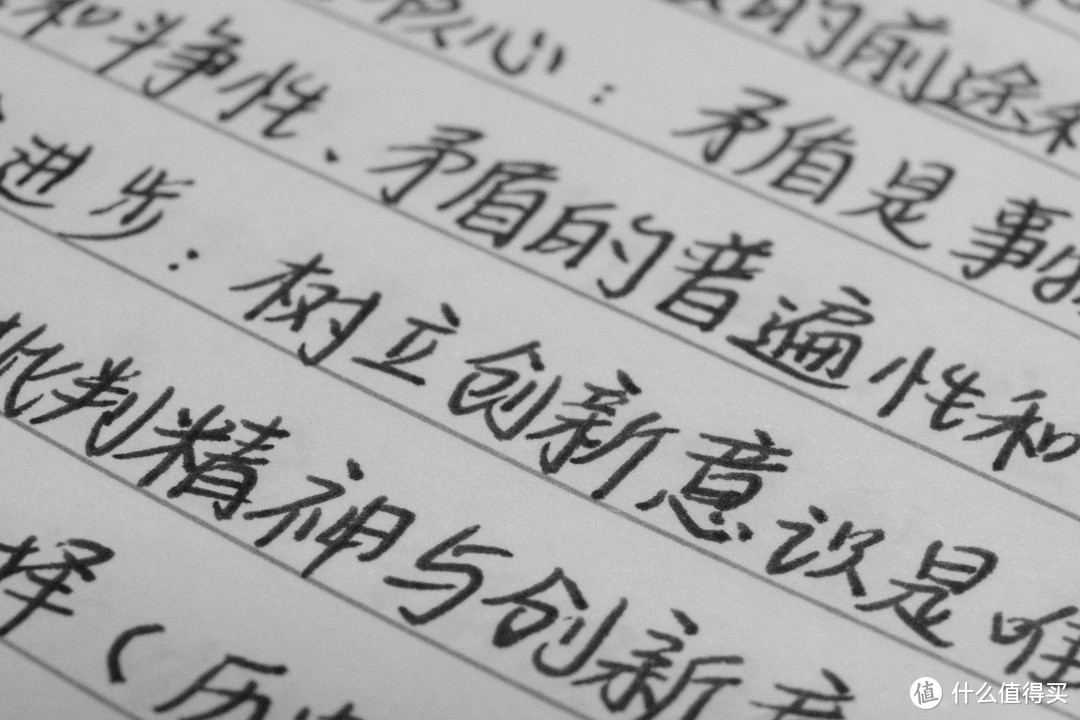 的前途和
核心：矛盾是事物
和斗争性、矛盾的普遍性和
进步：树立创新意识是唯
批判精神与创新意
择（历史
值 什么值得买